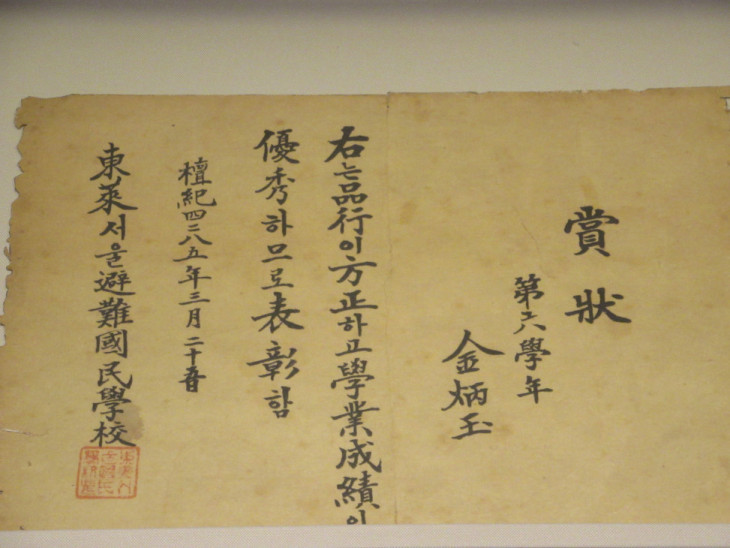 賞狀
第六學年
金炳玉
右는品行이方正하고學業成績이
優秀하므로表彰함
檀紀四二八五年三月二十五日
東萊서울避難國民學校